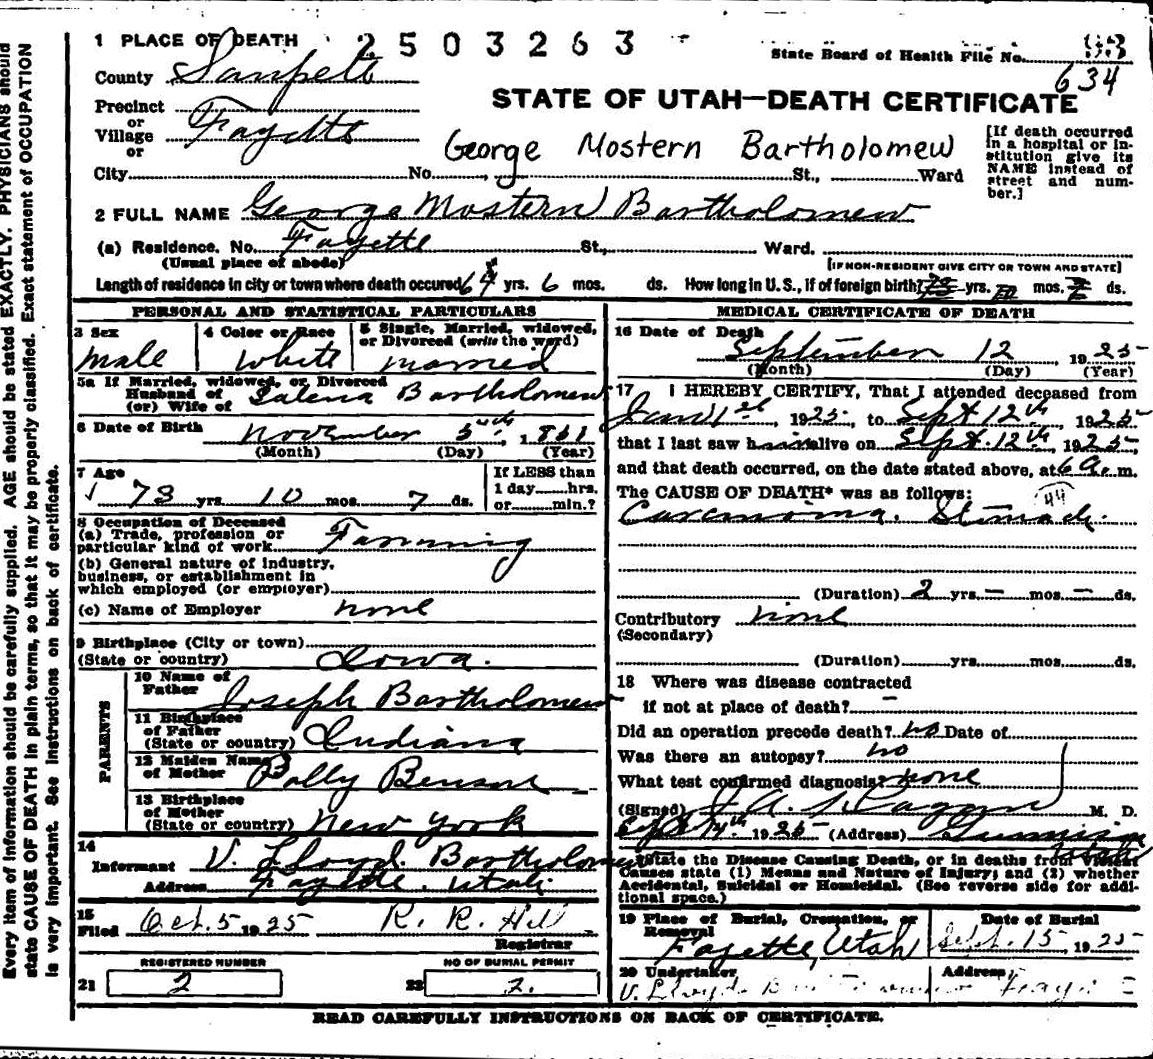 1 PLACE OF DEATH 2503263 State Board of Health File No.
634
County Sanpete
STATE OF UTAH—DEATH CERTIFICATE
Precinct
or
Village Fayette
or
George Mostern Bartholomew
[If death occurred in a hospital or in-
stitution give its
NAME instead of
street and num-
ber.]
City No. St., Ward
2 FULL NAME George Mostern Bartholomew
(a) Residence. No. Fayette St., Ward.
(Usual place of abode) [IF NON-RESIDENT GIVE CITY OR TOWN AND STATE]
Length of residence in city or town where death occured 64 yrs. 6 mos. ds. How long in U.S., if of foreign birth? yrs. mos. ds.
PERSONAL AND STATISTICAL PARTICULARS
3 Sex 4 Color or Race 5 Single, Married, widowed,
or Divorced (write the word)
male white married
5a If Married, widowed, or Divorced
Husband of
(or) Wife of Bartholomew
6 Date of Birth November 5th, 1851
(Month) (Day) (Year)
7 Age If LESS than
73 yrs. 10 mos. 7 ds. 1 day hrs.
or min.?
8 Occupation of Deceased
(a) Trade, profession or
particular kind of work Farming
(b) General nature of industry,
business, or establishment in
which employed (or employer)
(c) Name of Employer none
9 Birthplace (City or town)
(State or country) Iowa.
PARENTS
10 Name of
Father Joseph Bartholomew
11 Birthplace
of Father
(State or country) Indiana
12 Maiden Name
of Mother Polly Benson
13 Birthplace
of Mother
(State or country) New York
14
Informant V. Lloyd Bartholomew
Address Fayette. Utah
15
Filed Oct. 5 1925 R. R. Hill
Registrar
REGISTERED NUMBER NO OF BURIAL PERMIT
21 2 22 2.
MEDICAL CERTIFICATE OF DEATH
16 Date of Death
September 12 1925
(Month) (Day) (Year)
17 I HEREBY CERTIFY, That I attended deceased from
Jan 1st, 1925, to Sept 12th, 1925
that I last saw him alive on Sept. 12th, 1925,
and that death occurred, on the date stated above, at 6 a. m.
The CAUSE OF DEATH* was as follows:
44
Carcinoma. Stomach.
(Duration) 2 yrs. — mos. — ds.
Contributory none
(Secondary)
(Duration) yrs. mos. ds.
18 Where was disease contracted
if not at place of death? —
Did an operation precede death? no Date of
Was there an autopsy? no
What test confirmed diagnosis? none
(Signed) J. A. Hagan M. D.
Sept 14th 1925 (Address) Gunnison
Utah
*State the Disease Causing Death, or in deaths from Violent
Causes state (1) Means and Nature of Injury; and (2) whether
Accidental, Suicidal or Homicidal. (See reverse side for addi-
tional space.)
19 Place of Burial, Cremation, or Date of Burial
Removal
Fayette, Utah Sept. 15 1925
20 Undertaker Address
V. Lloyd
READ CAREFULLY INSTRUCTIONS ON BACK OF CERTIFICATE.
Every item of information should be carefully supplied. AGE should be stated EXACTLY. PHYSICIANS should
state CAUSE OF DEATH in plain terms, so that it may be properly classified. Exact statement of OCCUPATION
is very important. See instructions on back of certificate.